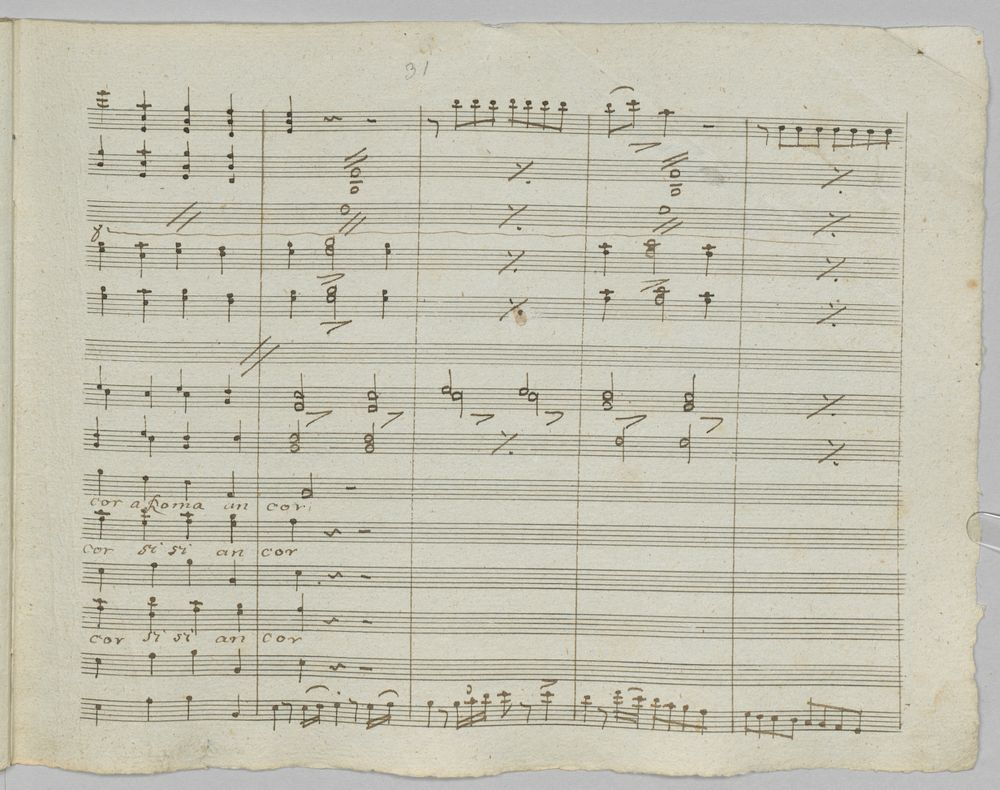 31
cor a Roma an cor
cor si si an cor
cor si si an cor